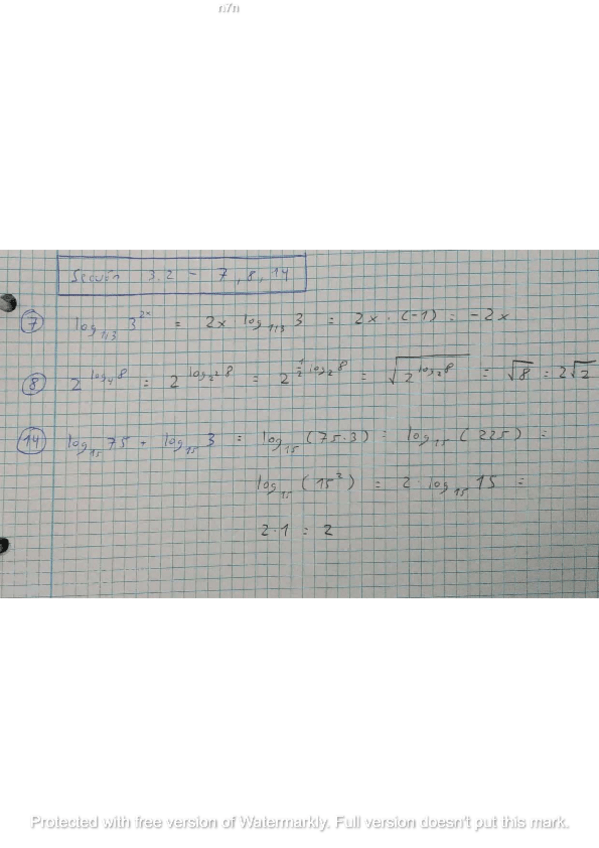 n7n
Sección 3.2 - 7, 8, 14
7 log₁/₃ 3²ˣ = 2x log₁/₃ 3 = 2x · (-1) = -2x
8 2^(log₄8) = 2^(log₂²8) = 2^(½ log₂8) = √(2^(log₂8)) = √8 = 2√2
14 log₁₅ 75 + log₁₅ 3 = log₁₅ (75·3) = log₁₅ (225) =
log₁₅ (15²) = 2 · log₁₅ 15 =
2·1 = 2
Protected with free version of Watermarkly. Full version doesn't put this mark.